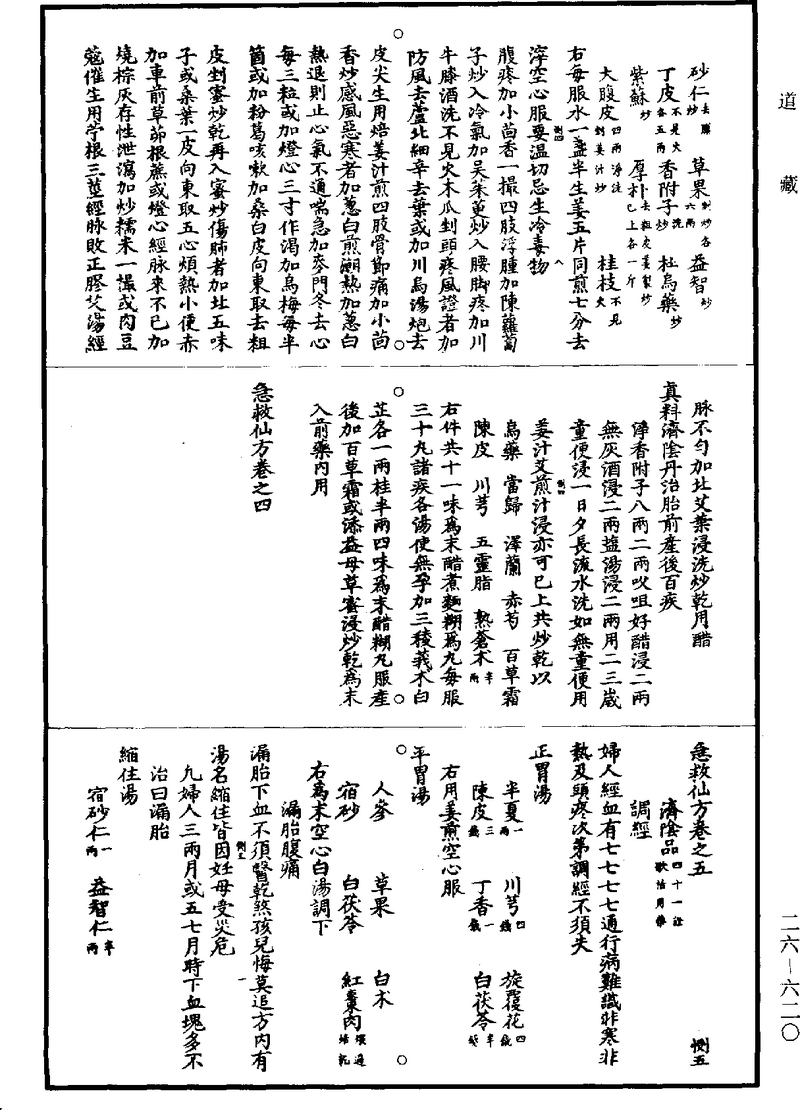 道藏
砂仁去膜炒　草果制炒各六兩　益智炒
丁皮不見火各五兩　香附子洗炒　杜烏藥炒
紫蘇炒　厚朴去粗皮姜製炒已上各一斤
大腹皮四兩淨洗剉姜汁炒　桂枝不見火
右每服水一盞半生姜五片同煎七分去
滓空心服要温切忌生冷毒物
腹疼加小茴香一撮四肢浮腫加陳蘿蔔
子炒入冷氣加吳茱萸炒入腰脚疼加川
牛膝酒洗不見火木瓜剉頭疼風證者加
防風去蘆北細辛去葉或加川烏湯炮去
皮尖生用焙姜汁煎四肢骨節痛加小茴
香炒感風惡寒者加蔥白煎潮熱加蔥白
熱退則止心氣不通喘急加麥門冬去心
每三粒或加燈心三寸作渴加烏梅每半
箇或加粉葛咳嗽加桑白皮向東取去粗
皮剉蜜炒乾再入蜜炒傷肺者加北五味
子或桑葉一皮向東取五心煩熱小便赤
加車前草茆根蔗或燈心經脉來不已加
燒棕灰存性泄瀉加炒糯米一撮或肉豆
蔻催生用苧根三莖經脉敗正膠艾湯經
脉不匀加北艾葉浸洗炒乾用醋
真料濟陰丹治胎前産後百疾
淨香附子八兩二兩㕮咀好醋浸二兩
無灰酒浸二兩鹽湯浸二兩用二三歲
童便浸一日夕長流水洗如無童便用
姜汁艾煎汁浸亦可已上共炒乾以
烏藥　當歸　澤蘭　赤芍　百草霜
陳皮　川芎　五靈脂　熟蒼朮半兩
右件共十一味爲末醋煮麵糊爲丸每服
三十丸諸疾各湯使無孕加三稜莪朮白
芷各一兩桂半兩四味爲末醋糊丸服産
後加百草霜或添益母草蜜浸炒乾爲末
入前藥内用
急救仙方卷之四
急救仙方卷之五　惻五
濟陰品四十一證歌括用藥
調經
婦人經血有七七七七通行病難識非寒非
熱及頭疼次第調經不須失
正胃湯
半夏一兩　川芎四錢　旋覆花四錢
陳皮三錢　丁香一錢　白茯苓半錢
右用姜煎空心服
平胃湯
人參　草果　白朮
宿砂　白茯苓　紅棗肉煨過焙乾
右爲末空心白湯調下
漏胎腹痛
漏胎下血不須醫乾煞孩兒悔莫追方内有
湯名縮住皆因妊母受災危
凡婦人三兩月或五七月時下血塊多不
治曰漏胎
縮住湯
宿砂仁一兩　益智仁半兩
二六—六二〇